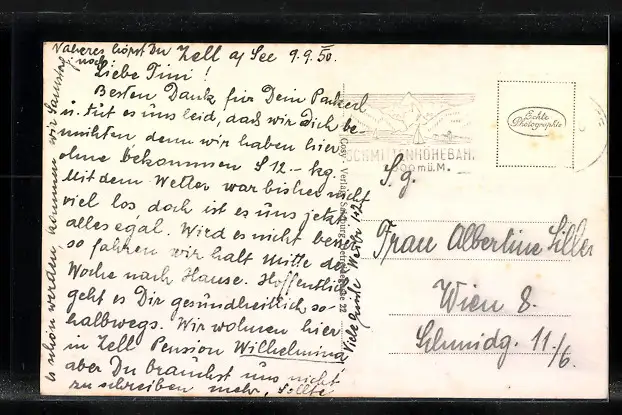 Näheres hörst Du noch.
Zell a/ See 9.9.50.
Liebe Tini!
Besten Dank für Dein Packerl
u. tut es uns leid, dass wir Dich be-
mühten denn wir haben hier
ohne bekommen S 12.– kg.
Mit dem Wetter war bisher nicht
viel los doch ist es uns jetzt
alles egal. Wird es nicht besser
so fahren wir halt Mitte der
Woche nach Hause. Hoffentlich
geht es Dir gesundheitlich so-
halbwegs. Wir wohnen hier
in Zell Pension Wilhelmina
aber Du brauchst uns nicht
zu schreiben mehr, Sollte
es schön werden kommen wir Samstag
Viele Grüße
Cosy-Verlag Salzburg
22
SCHMITTENHÖHEBAHN
2000m ü.M.
Echte
Photographie
S. g.
Frau Albertine Siller
Wien 8.
Schmidg. 11/6.